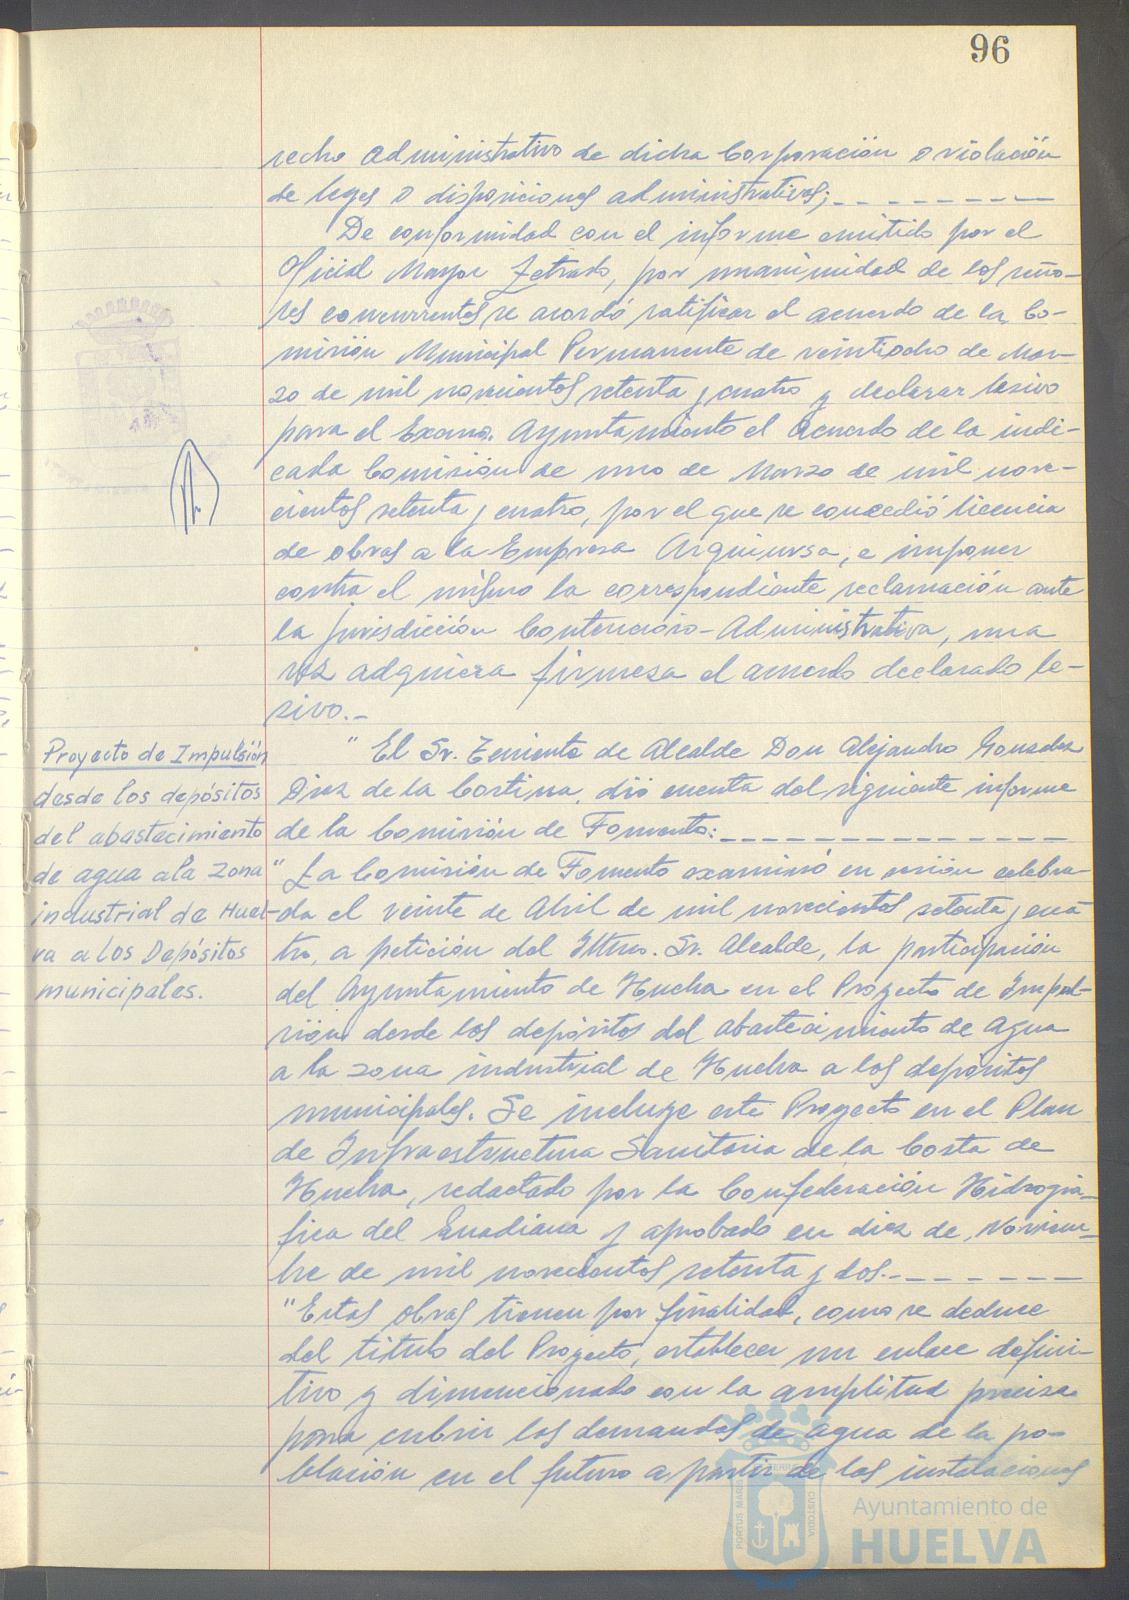 96
recho administrativo de dicha Corporación o violación
de leyes o disposiciones administrativas;_ _ _ _ _ _ _ _ _
De conformidad con el informe emitido por el
Oficial Mayor Letrado, por unanimidad de los seño-
res concurrentes se acordó ratificar el acuerdo de la Co-
misión Municipal Permanente de veintiocho de Mar-
zo de mil novecientos setenta y cuatro y declarar lesivo
para el Excmo. Ayuntamiento el acuerdo de la indi-
cada Comisión de uno de Marzo de mil nove-
cientos setenta y cuatro, por el que se concedió licencia
de obras a la Empresa Arquinrsa, e imponer
contra el mismo la correspondiente reclamación ante
la jurisdicción Contencioso-Administrativa, una
vez adquiera firmeza el acuerdo declarado le-
sivo.-
Proyecto de Impulsión
desde los depósitos
del abastecimiento
de agua a la zona
industrial de Huel-
va a los Depósitos
municipales.
" El Sr. Teniente de Alcalde Don Alejandro Gonzalez
Diez de la Cortina, dió cuenta del siguiente informe
de la Comisión de Fomento:_ _ _ _ _ _ _ _ _ _ _ _
" La Comisión de Fomento examinó en sesión celebra-
da el veinte de Abril de mil novecientos setenta y cua
tro, a petición del Iltmo. Sr. Alcalde, la participación
del Ayuntamiento de Huelva en el Proyecto de Impul-
sión desde los depósitos del abastecimiento de agua
a la zona industrial de Huelva a los depósitos
municipales. Se incluye este Proyecto en el Plan
de Infraestructura Sanitaria de la Costa de
Huelva, redactado por la Confederación Hidrográ-
fica del Guadiana y aprobado en diez de Noviem-
bre de mil novecientos setenta y dos.-_ _ _ _ _ _ _
"Estas obras tienen por finalidad, como se deduce
del titulo del Proyecto, establecer un enlace defini-
tivo y dimencionado con la amplitud precisa
para cubrir las demandas de agua de la po-
blación en el futuro a partir de las instalaciones
PORTUS MARIS ET TERRAE CUSTODIA
Ayuntamiento de
HUELVA